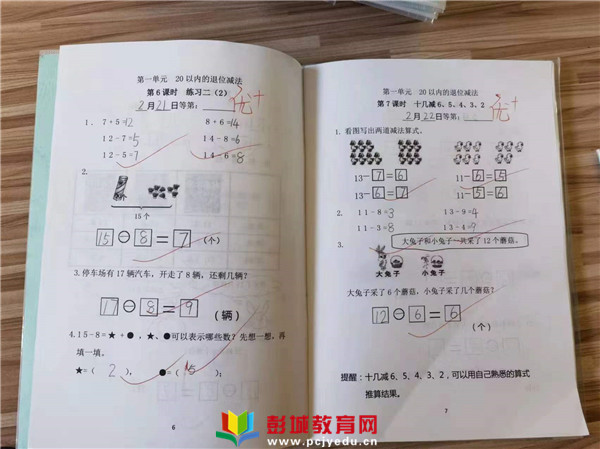 第一单元 20以内的退位减法
第6课时 练习二(2)
2月21日等第: 优+
1. 7+5=12 8+6=14
12-7=5 14-8=6
12-5=7 14-6=8
2.
15个
15⊖8=7(个)
3.停车场有17辆汽车,开走了8辆,还剩几辆?
17⊖8=9(辆)
4.15-8=★+●,★、●可以表示哪些数?先想一想,再
填一填。
★=( 2 ), ●=( 5 );
6
第一单元 20以内的退位减法
第7课时 十几减6、5、4、3、2
2月22日等第: 优+
1.看图写出两道减法算式。
13-7=6 11-5=6
13-6=7 11-6=5
2. 11-8=3 13-9=4
11-3=8 13-4=9
3. 大兔子和小兔子一共采了12个蘑菇。
大兔子 小兔子
大兔子采了6个蘑菇,小兔子采了几个蘑菇?
12⊖6=6(个)
提醒:十几减6、5、4、3、2,可以用自己熟悉的算式
推算结果。
7
彭城教育网
www.pcjyedu.cn